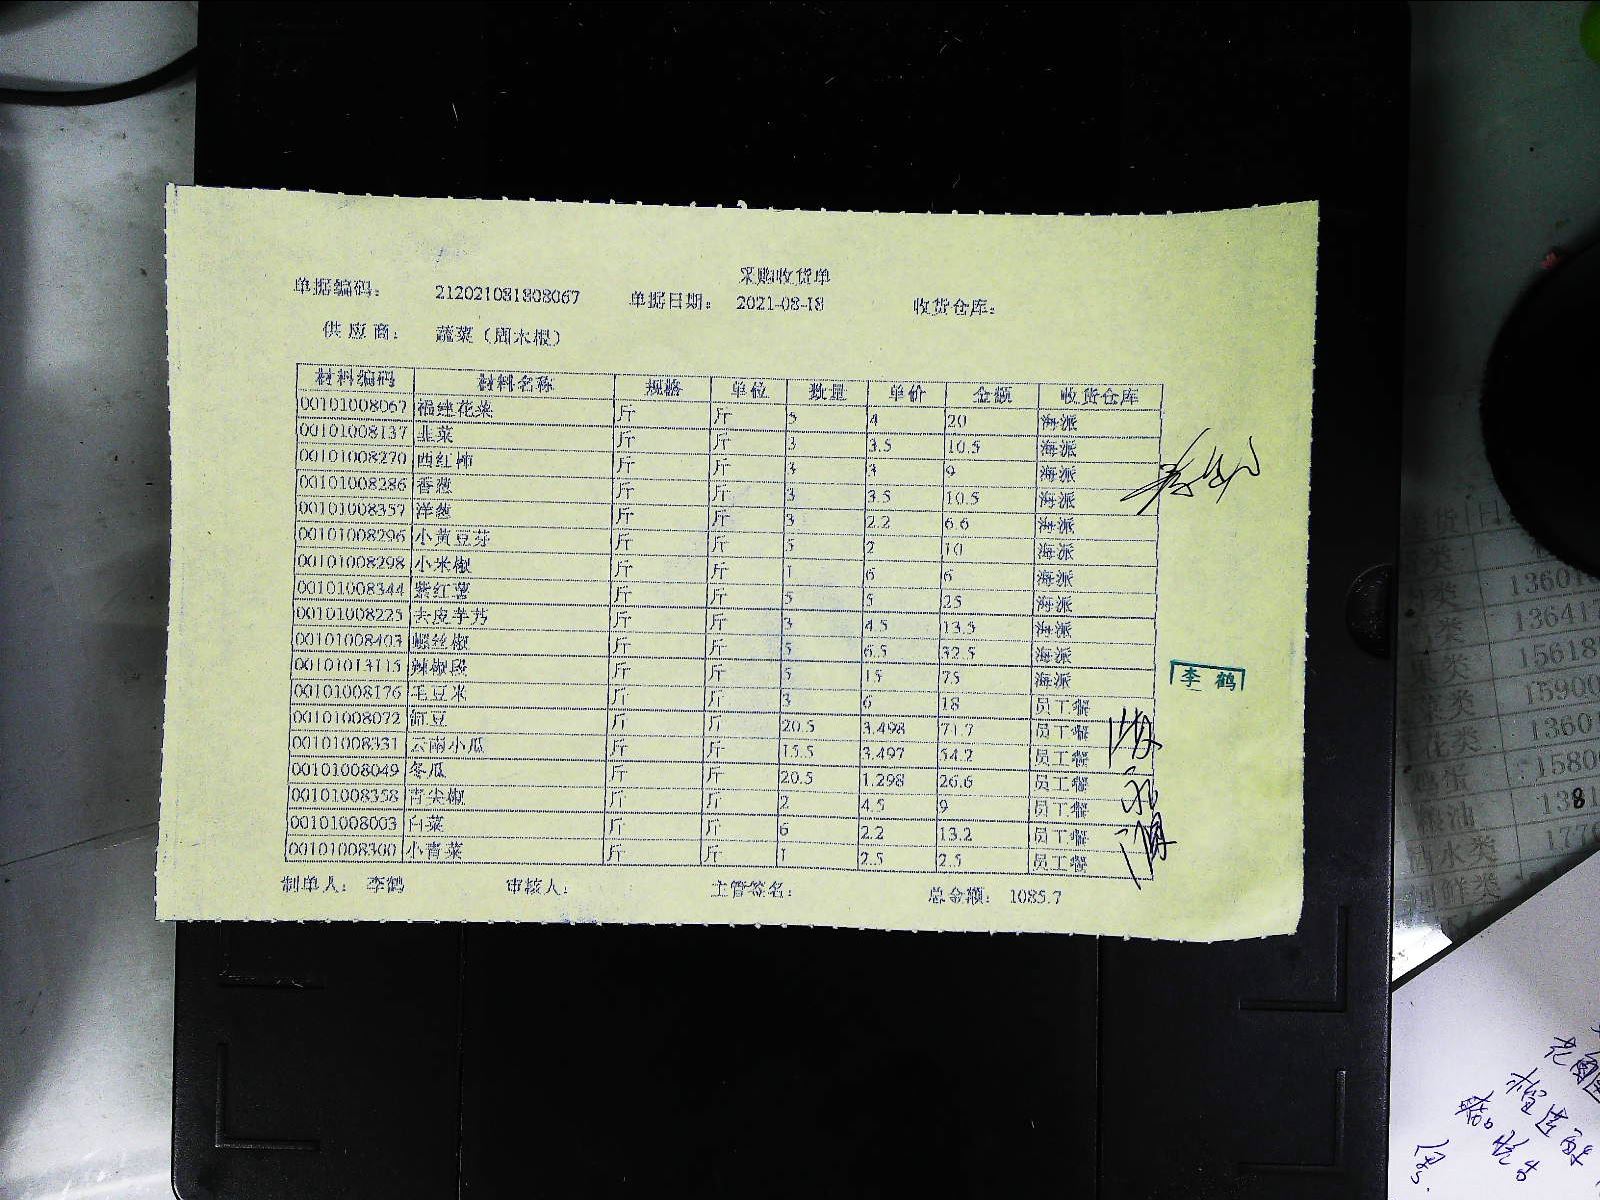 采购收货单
单据编码： 212021081808067 单据日期： 2021-08-18 收货仓库：
供应商： 蔬菜（周木根）
材料编码 材料名称 规格 单位 数量 单价 金额 收货仓库
00101008067 福建花菜 斤 斤 5 4 20 海派
00101008137 韭菜 斤 斤 3 3.5 10.5 海派
00101008270 西红柿 斤 斤 3 3 9 海派
00101008286 香葱 斤 斤 3 3.5 10.5 海派
00101008357 洋葱 斤 斤 3 2.2 6.6 海派
00101008296 小黄豆芽 斤 斤 5 2 10 海派
00101008298 小米椒 斤 斤 1 6 6 海派
00101008344 紫红薯 斤 斤 5 5 25 海派
00101008225 去皮芋艿 斤 斤 3 4.5 13.5 海派
00101008403 螺丝椒 斤 斤 5 6.5 32.5 海派
00101013115 辣椒段 斤 斤 5 15 75 海派
00101008176 毛豆米 斤 斤 3 6 18 员工餐
00101008072 豇豆 斤 斤 20.5 3.498 71.7 员工餐
00101008331 云南小瓜 斤 斤 15.5 3.497 54.2 员工餐
00101008049 冬瓜 斤 斤 20.5 1.298 26.6 员工餐
00101008358 青尖椒 斤 斤 2 4.5 9 员工餐
00101008003 白菜 斤 斤 6 2.2 13.2 员工餐
00101008300 小青菜 斤 斤 1 2.5 2.5 员工餐
李鹤
制单人： 李鹤 审核人： 主管签名： 总金额： 1085.7